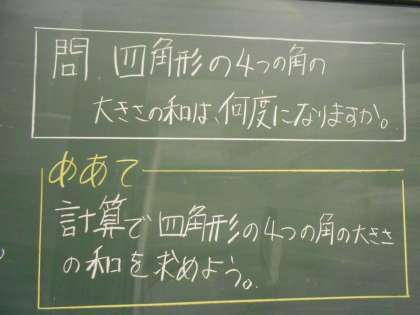 問 四角形の4つの角の
大きさの和は、何度になりますか。
めあて
計算で四角形の4つの角の大きさ
の和を求めよう。